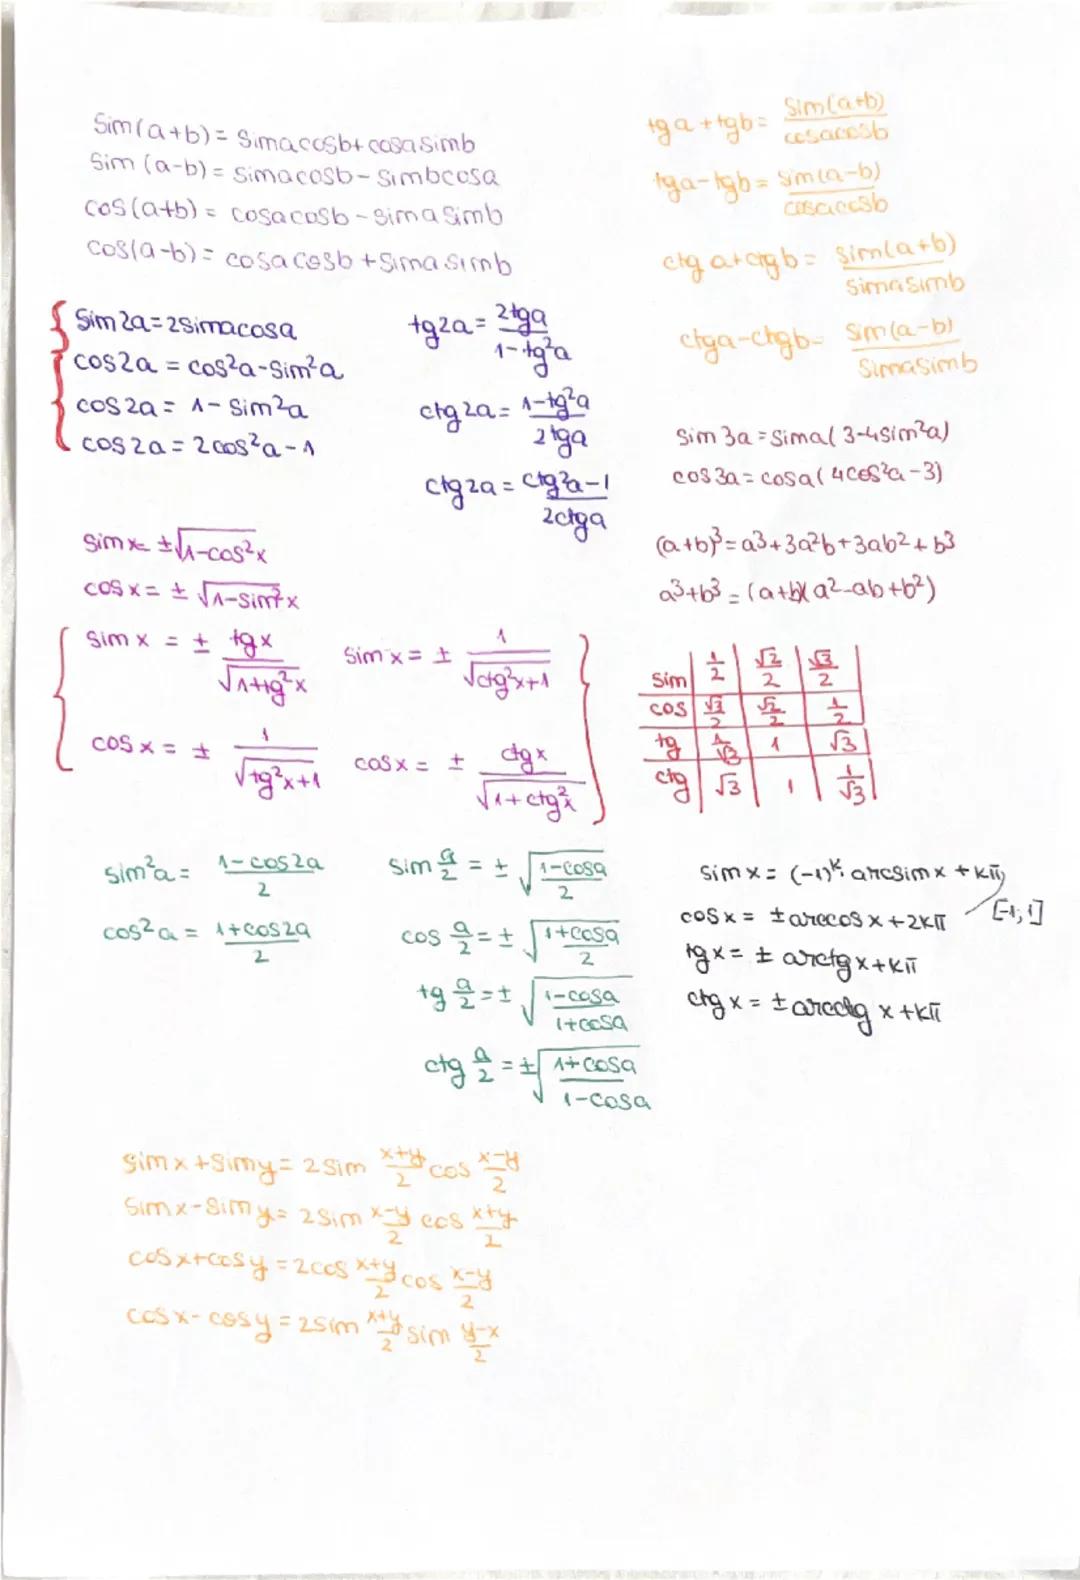 Sim(a+b) = Simacosb+cosasimb
Sim (a-b) = simacosb-simbcosa
cos(a+b) = cosacosb-simasimb
cos(a-b) = cosacosb+simasimb
tga+tgb = Sim(a+b)/cosacosb
tga-tgb = sim(a-b)/cosacosb
ctga+ctgb = sim(a+b)/simasimb
ctga-ctgb = sim(a-b)/simasimb
Sim2a=2simacosa
cos2a = cos²a-sim²a
cos2a = 1-sim²a
cos2a = 2cos²a-1
tg2a = 2tga/1-tg²a
ctg2a = 1-tg²a/2tga
ctg2a = ctg²a-1/2ctga
sim3a = sima(3-4sim²a)
cos3a = cosa(4cos²a-3)
(a+b)³ = a³+3a²b+3ab²+b³
a³+b³ = (a+b)(a²-ab+b²)
simx = ±√1-cos²x
cosx = ±√1-sim²x
simx = ± tgx/√1+tg²x
simx = ± 1/√ctg²x+1
cosx = ± 1/√tg²x+1
cosx = ± ctgx/√1+ctg²x
sim 1/2 √2/2 √3/2
cos √3/2 √2/2 1/2
tg 1/√3 1 √3
ctg √3 1 1/√3
sim²a = 1-cos2a/2
cos²a = 1+cos2a/2
sim a/2 = ±√1-cosa/2
cos a/2 = ±√1+cosa/2
tg a/2 = ±√1-cosa/1+cosa
ctg a/2 = ±√1+cosa/1-cosa
simx = (-1)ᵏ· arcsimx + kπ
[-1;1]
cosx = ±arccosx+2kπ
tgx = ± arctgx+kπ
ctgx = ±arcctgx+kπ
simx+simy = 2sim x+y/2 cos x-y/2
simx-simy = 2sim x-y/2 cos x+y/2
cosx+cosy = 2cos x+y/2 cos x-y/2
cosx-cosy = 2sim x+y/2 sim y-x/2